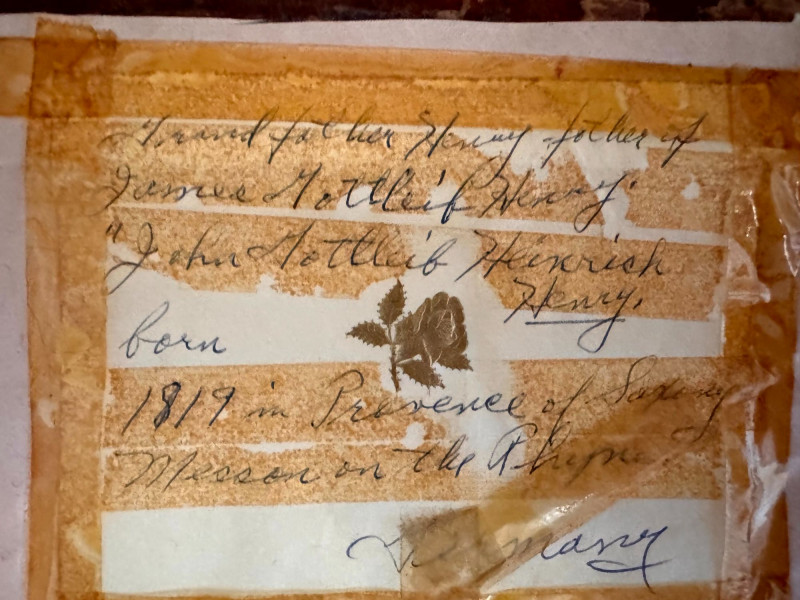 Grand father Henry father of
James Gottleib Henry.
"John Gottleib Heinrich
Henry.
born
1819 in Provence of Saxony
Messon on the Rhyne
Germany